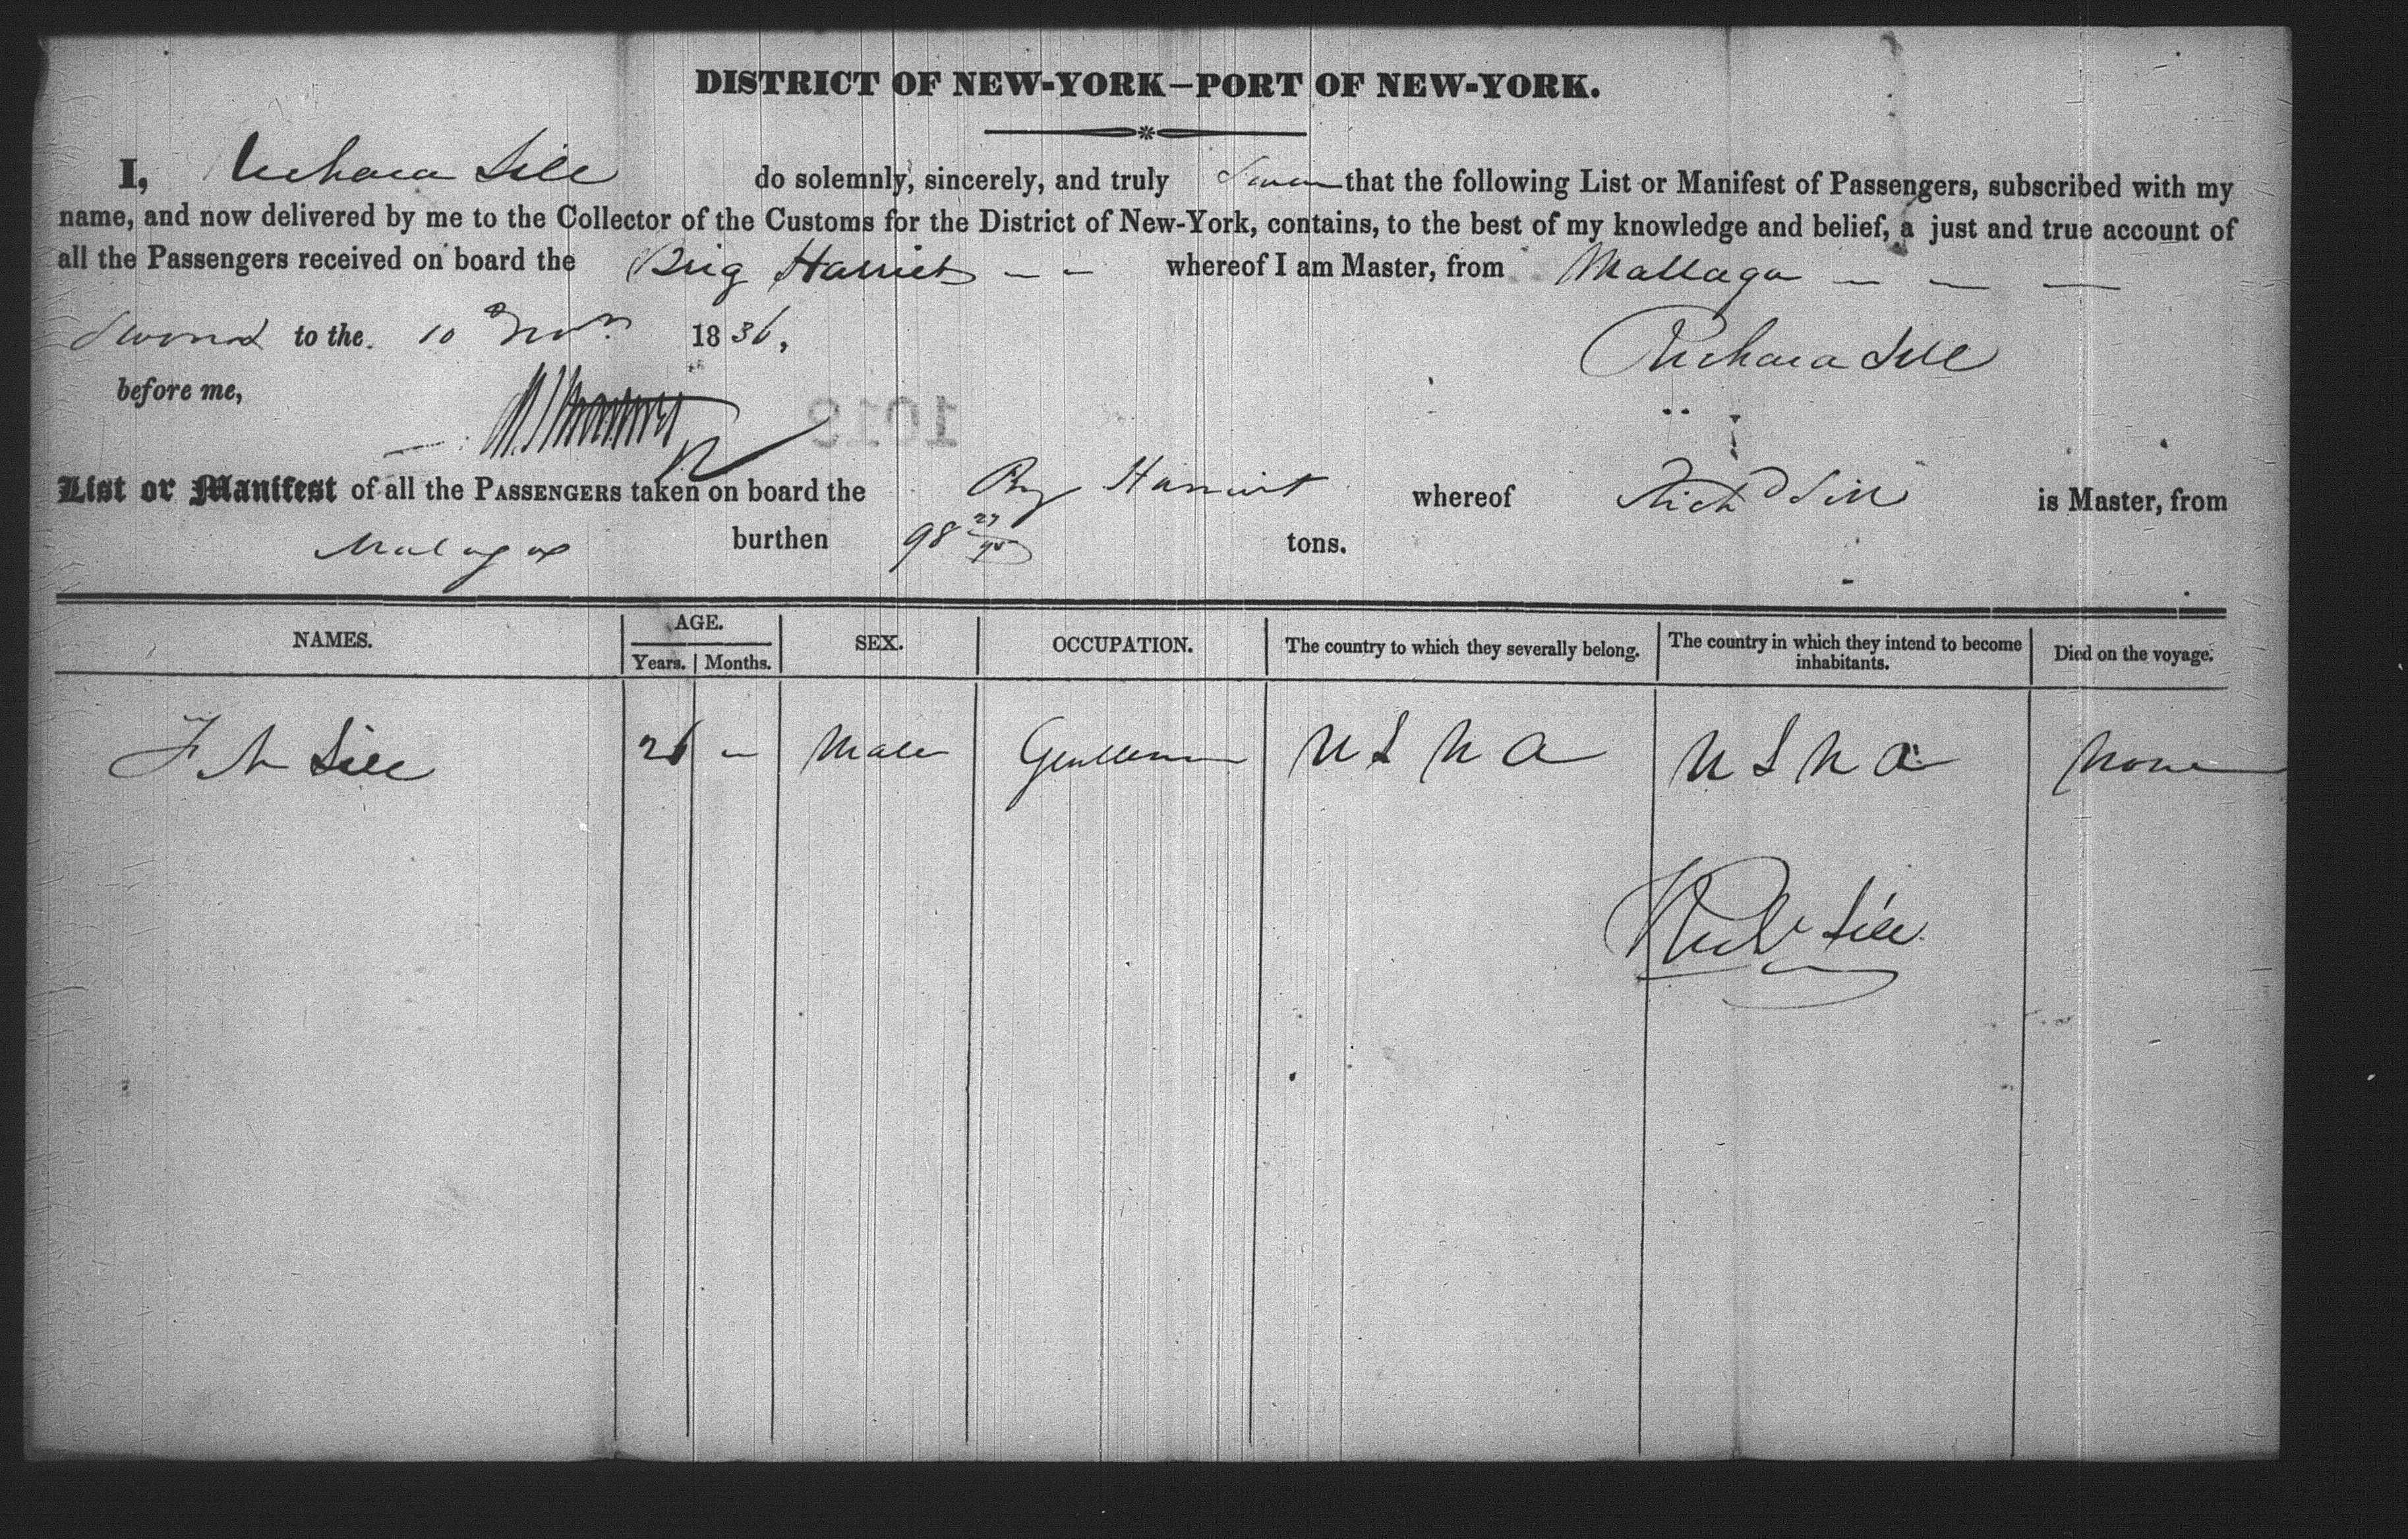 DISTRICT OF NEW-YORK—PORT OF NEW-YORK.
I, Richard Sill do solemnly, sincerely, and truly Swear that the following List or Manifest of Passengers, subscribed with my
name, and now delivered by me to the Collector of the Customs for the District of New-York, contains, to the best of my knowledge and belief, a just and true account of
all the Passengers received on board the Brig Harriet — — whereof I am Master, from Mallaga — — —
Sworn to the 10 Novr 1836,
Richard Sill
before me,
1018
List or Manifest of all the PASSENGERS taken on board the Brig Harriet whereof Richd Sill is Master, from
Malaga burthen 98 tons.
NAMES. AGE. SEX. OCCUPATION. The country to which they severally belong. The country in which they intend to become inhabitants. Died on the voyage.
Years. Months.
F A Sill 26 – Male Gentleman U S N A U S N A None
Richd Sill